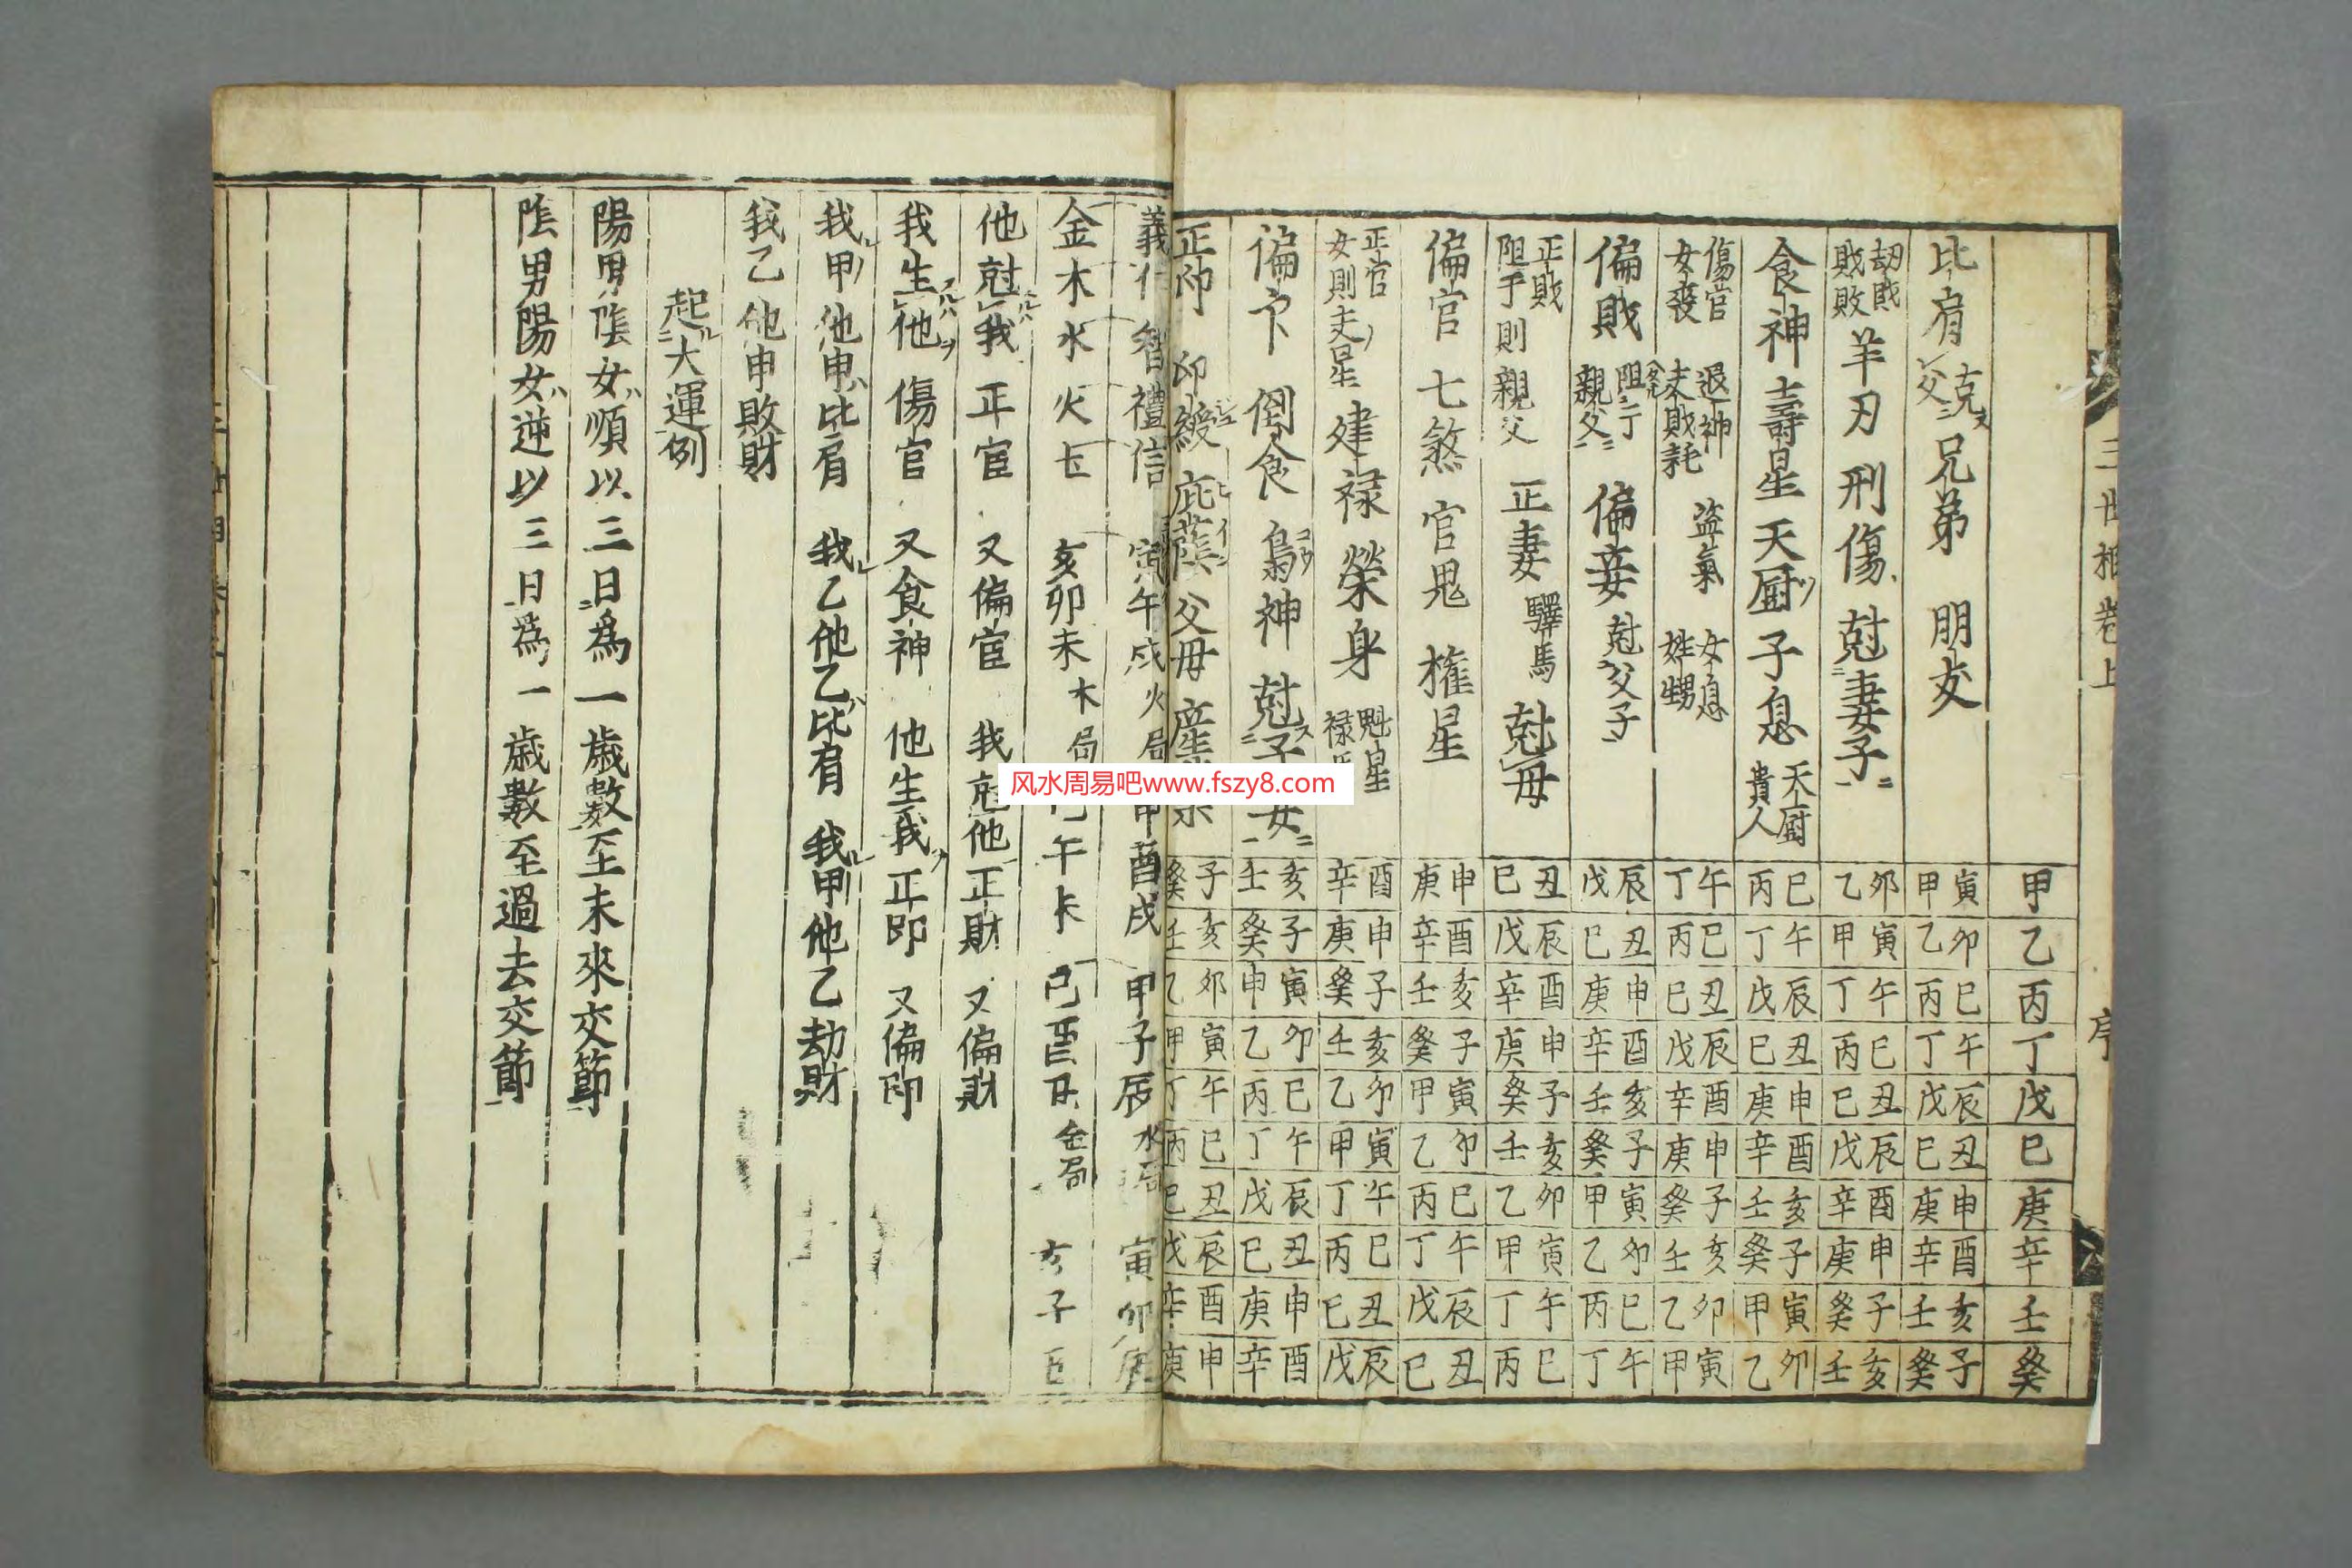 三世相卷上
序
甲乙丙丁戊巳庚辛壬癸
比肩 克父 兄弟 朋友
寅甲 卯乙 巳丙 午丁 辰戊 丑巳 申庚 酉辛 亥壬 子癸
劫財 敗財 羊刃 刑傷 尅妻子
卯乙 寅甲 午丁 巳丙 丑巳 辰戊 酉辛 申庚 子癸 亥壬
食神 壽星 天厨 子息 天厨貴人
巳丙 午丁 辰戊 丑巳 申庚 酉辛 亥壬 子癸 寅甲 卯乙
傷官 女喪 退神 盜氣 女息 姓甥
午丁 巳丙 丑巳 辰戊 酉辛 申庚 子癸 亥壬 卯乙 寅甲
偏財 親父 偏妾 尅父子
辰戊 丑巳 申庚 酉辛 亥壬 子癸 寅甲 卯乙 巳丙 午丁
正財 阻手則親父 正妻 驛馬 尅母
丑巳 辰戊 酉辛 申庚 子癸 亥壬 卯乙 寅甲 午丁 巳丙
偏官 七煞 官鬼 權星
申庚 酉辛 亥壬 子癸 寅甲 卯乙 巳丙 午丁 辰戊 丑巳
正官 女則夫星 建禄 榮身 魁星 禄
酉辛 申庚 子癸 亥壬 卯乙 寅甲 午丁 巳丙 丑巳 辰戊
偏卩 倒食 梟神 尅子女
亥壬 子癸 寅甲 卯乙 巳丙 午丁 辰戊 丑巳 申庚 酉辛
正印 印綬 庇蔭 父母
子癸 亥壬 卯乙 寅甲 午丁 巳丙 丑巳 辰戊 酉辛 申庚
義仁智禮信 寅午戌火局 申酉戌 甲子辰水局 寅卯辰
金木水火土 亥卯未木局 巳午未 巳酉丑金局 亥子丑
他尅我 正官 又偏官 我尅他正財 又偏財
我生他 傷官 又食神 他生我正印 又偏印
我甲他甲比肩 我乙他乙比肩 我甲他乙劫財
我乙他甲敗財
起大運例
陽男陰女順以三日爲一歲數至未來交節
陰男陽女逆以三日爲一歲數至過去交節
风水周易吧www.fszy8.com